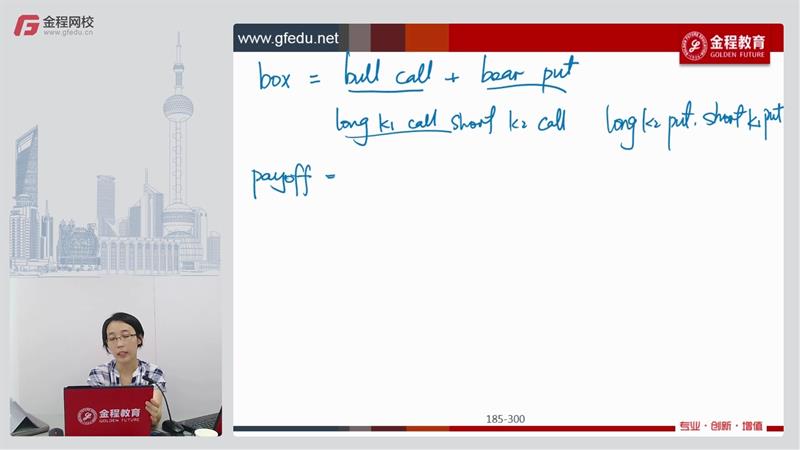 金程网校
www.gfedu.cn
www.gfedu.net
金程教育
GOLDEN FUTURE
box = bull call + bear put
long k₁ call short k₂ call long k₂ put. short k₁ put
payoff =
金程教育
GOLDEN FUTURE
185-300
专业·创新·增值